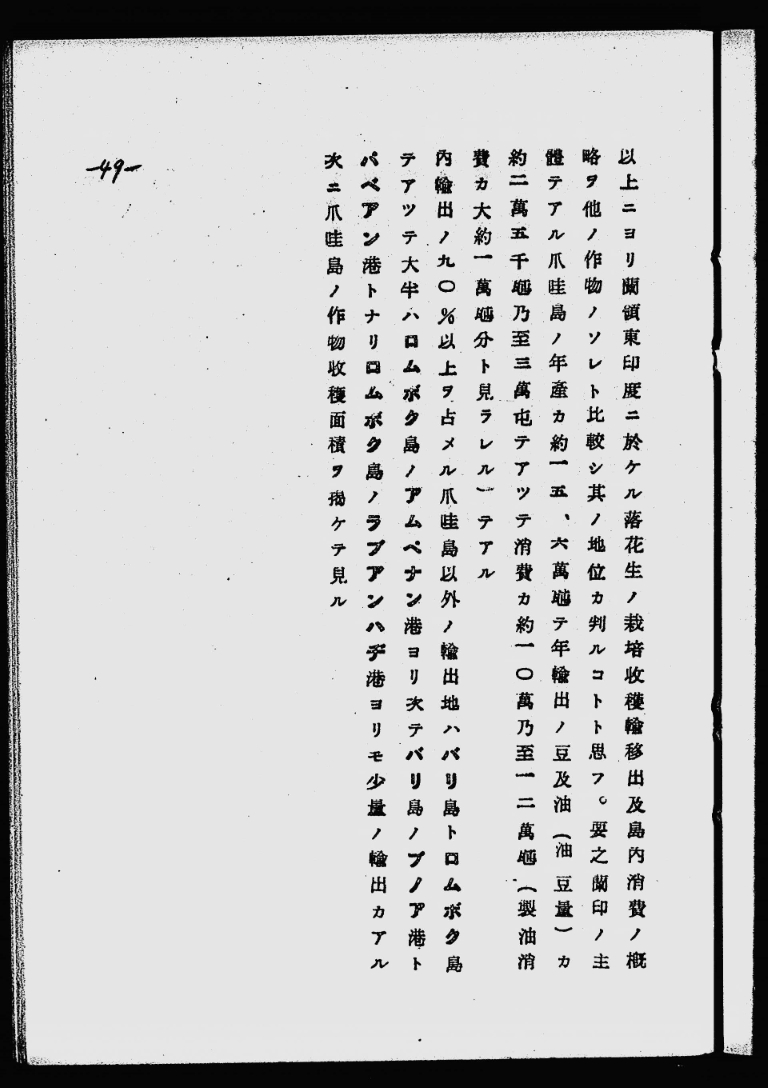 以上ニヨリ蘭領東印度ニ於ケル落花生ノ栽培收穫輸移出及島內消費ノ概
略ヲ他ノ作物ノソレト比較シ其ノ地位カ判ルコトト思フ。要之蘭印ノ主
體テアル爪哇島ノ年產カ約一五、六萬瓲テ年輸出ノ豆及油(油豆量)カ
約二萬五千瓲乃至三萬屯テアツテ消費カ約一〇萬乃至一二萬瓲(製油消
費カ大約一萬瓲分ト見ラレル)テアル
內輸出ノ九〇%以上ヲ占メル爪哇島以外ノ輸出地ハバリ島トロムボク島
テアツテ大半ハロムボク島ノアムペナン港ヨリ次テバリ島ノブノア港ト
パベアン港トナリロムボク島ノラブアンハヂ港ヨリモ少量ノ輸出カアル
次ニ爪哇島ノ作物收穫面積ヲ揭ケテ見ル
-49-